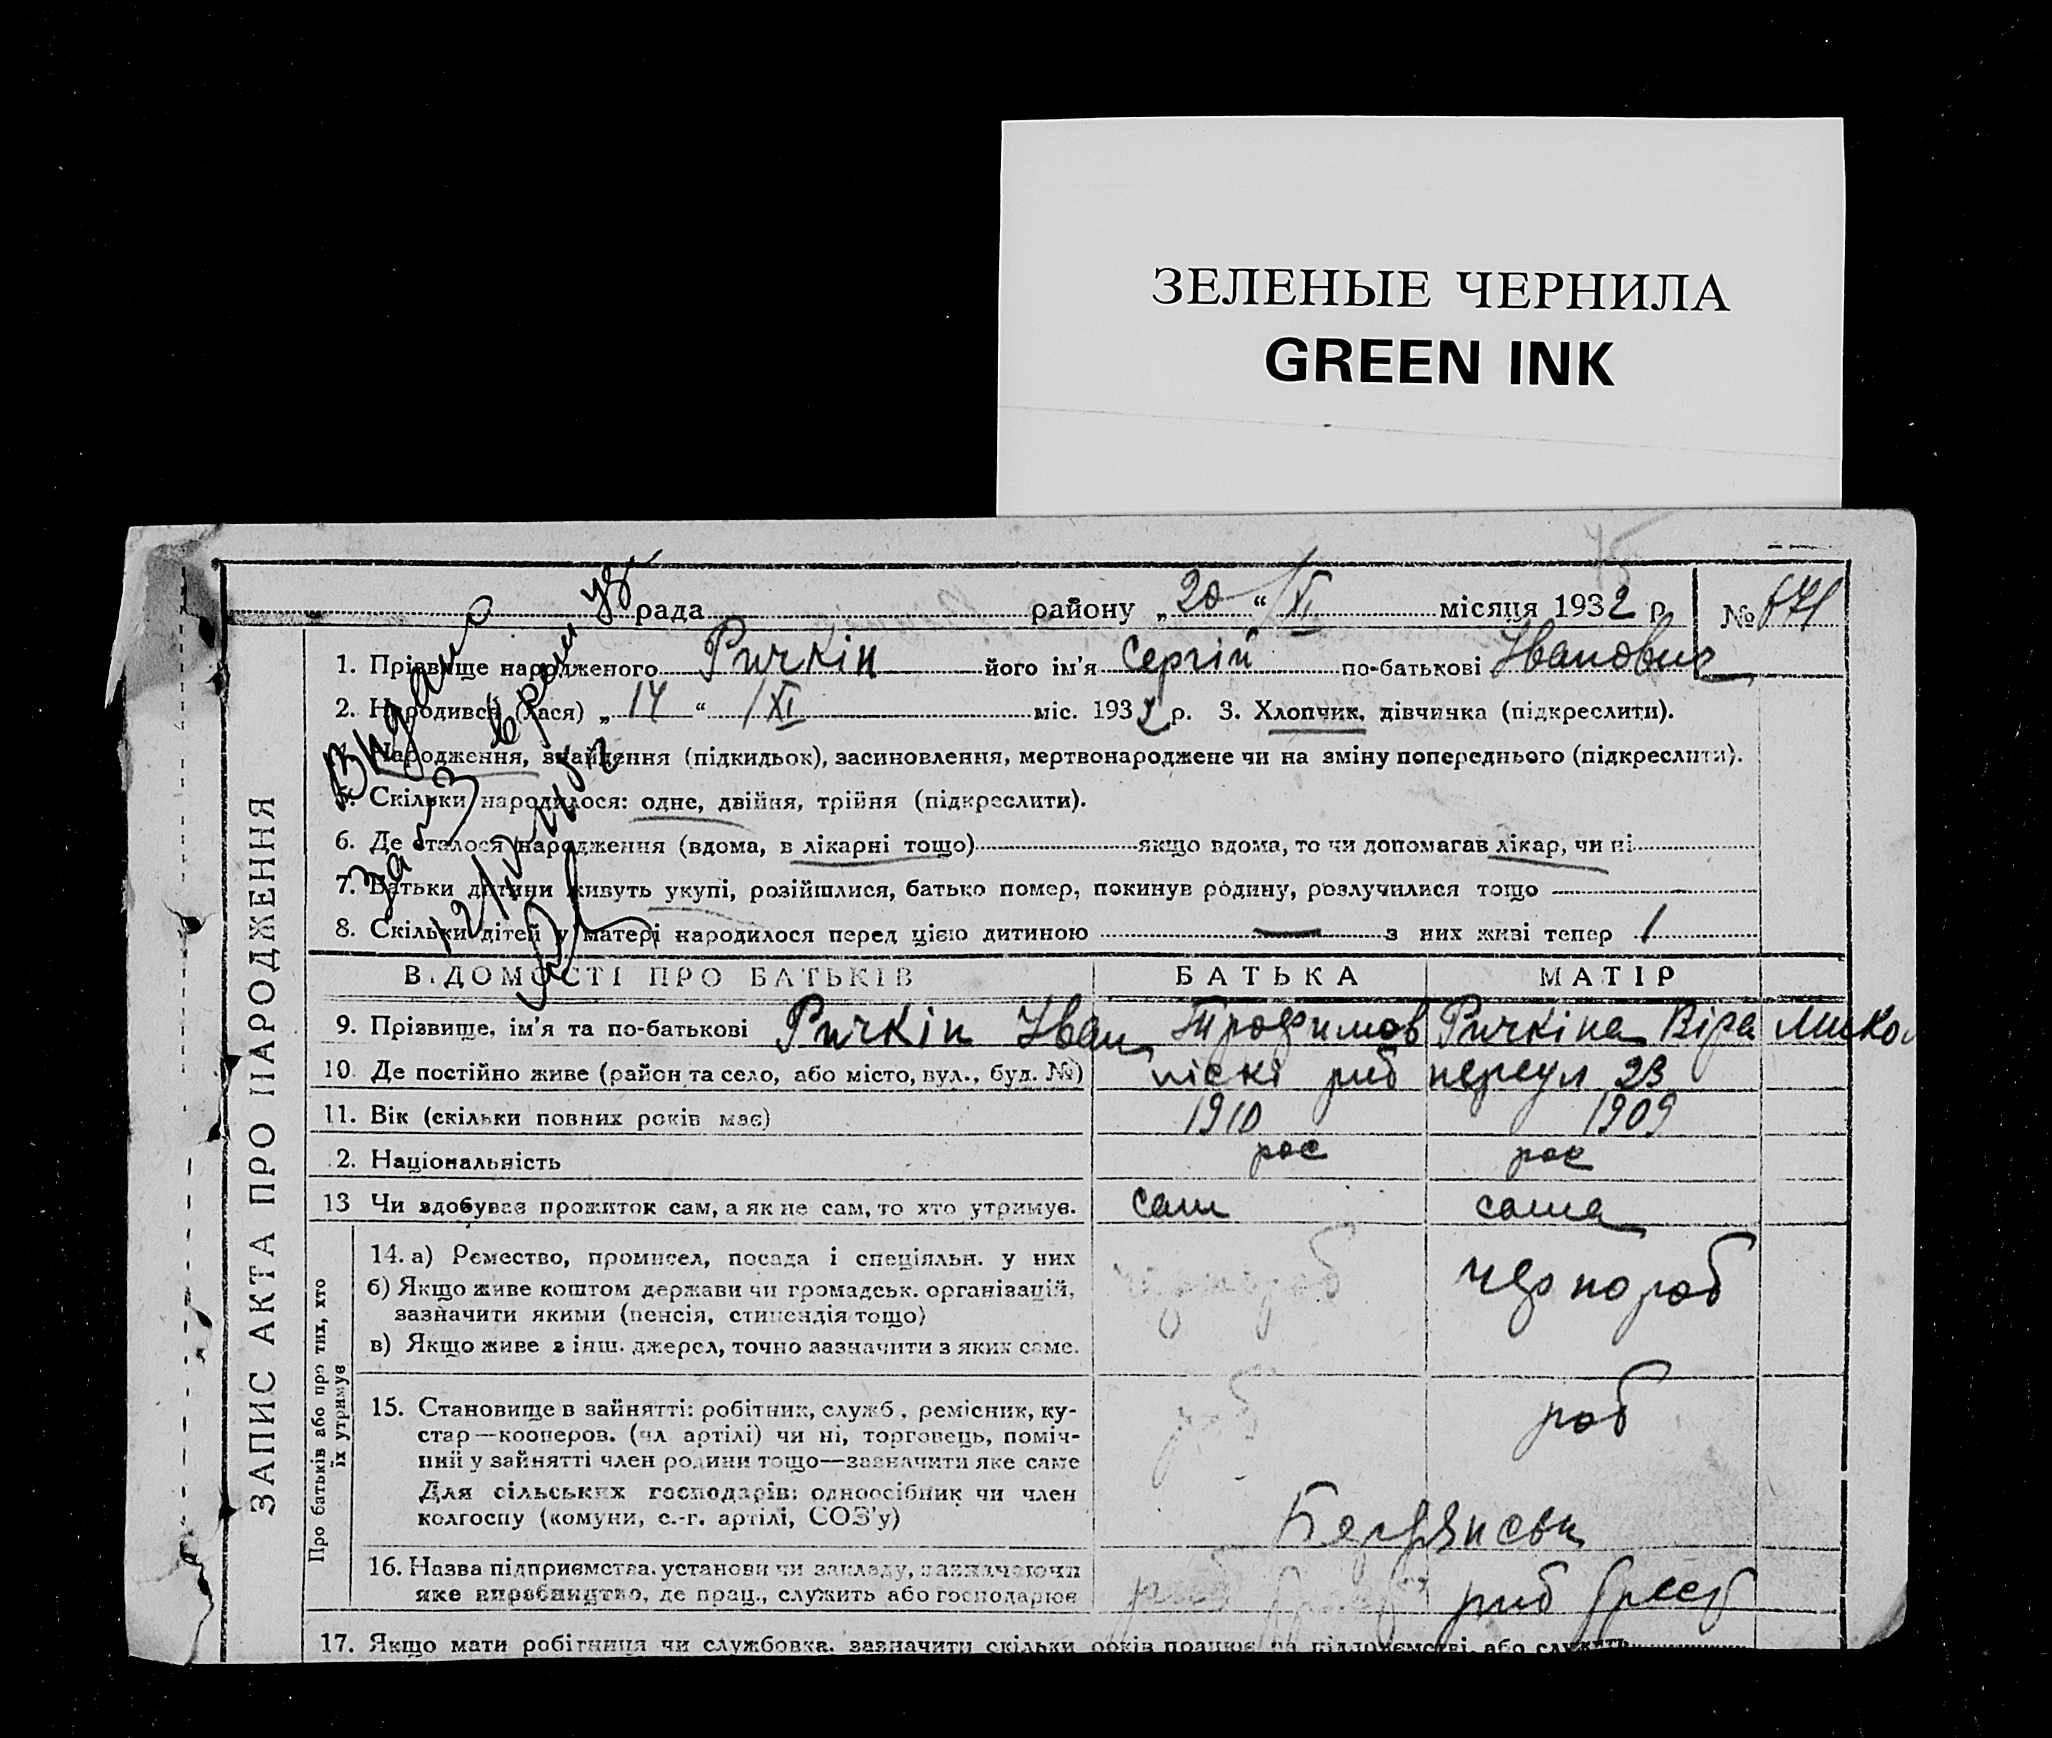 ЗЕЛЕНЫЕ ЧЕРНИЛА
GREEN INK
45
рада району „20“ /XI місяця 1932 р. № 671
1. Прізвище народженого Ричкін його ім'я Сергій по-батькові Іванович
2. Народився (лася) „14“ /XI міс. 1932 р. 3. Хлопчик, дівчинка (підкреслити).
4. Народження, знайдення (підкидьок), засиновлення, мертвонароджене чи на зміну попереднього (підкреслити).
5. Скільки народилося: одне, двійня, трійня (підкреслити).
6. Де сталося народження (вдома, в лікарні тощо) якщо вдома, то чи допомагав лікар, чи ні
7. Батьки дитини живуть укупі, розійшлися, батько помер, покинув родину, розлучилися тощо
8. Скільки дітей у матері народилося перед цією дитиною — з них живі тепер 1
ЗАПИС АКТА ПРО НАРОДЖЕННЯ
ВІДОМОСТІ ПРО БАТЬКІВ БАТЬКА МАТІР
9. Прізвище, ім'я та по-батькові Ричкін Іван Трофимов Ричкіна Віра Мико
10. Де постійно живе (район та село, або місто, вул., буд. №) піскі риб переул 23
11. Вік (скільки повних років має) 1910 1909
12. Національність рос рос
13 Чи здобував прожиток сам, а як не сам, то хто утримує. сам сама
Про батьків або про тих, хто їх утримує
14. а) Ремество, промисел, посада і спеціяльн. у них чернороб чернороб
б) Якщо живе коштом держави чи громадськ. організацій,
зазначити якими (пенсія, стипендія тощо)
в) Якщо живе з інш. джерел, точно зазначити з яких саме.
15. Становище в зайнятті: робітник, служб., ремісник, ку-
стар—кооперов. (чл артілі) чи ні, торговець, поміч-
ний у зайнятті член родини тощо—зазначити яке саме роб роб
Для сільських господарів: одноосібник чи член
колгоспу (комуни, с.-г. артілі, СОЗ'у)
16. Назва підприємства, установи чи закладу, зазначаючи
яке виробництво, де прац., служить або господарює риб риб
17. Якщо мати робітниця чи службовка, зазначити скільки років працює на підприємстві, або служить